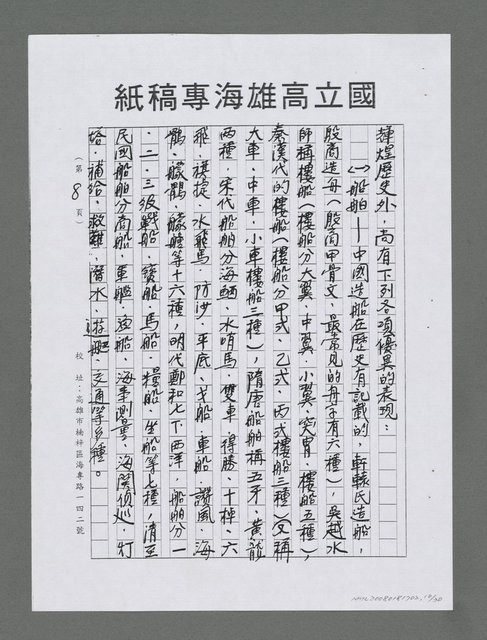 國立高雄海專稿紙
輝煌歷史外，尚有下列各項優異的表現：
㈠船舶——中國造船在歷史有記載的，軒轅氏造船，
殷商造舟（殷商甲骨文，最常見的舟字有六種），吳越水
師稱樓船（樓船分大翼、中翼、小翼、突冒、樓船五種），
秦漢代的樓船（樓船分甲式、乙式、丙式樓船三種）（又稱
大車、中車、小車樓船三種），隋唐船舶稱五牙、黃龍
兩種，宋代船舶分海鰌、水哨馬、雙車、得勝、十棹、六
飛、旋捷、水飛馬、防沙、平底、戈船、車船、讚風、海
鶻、艨鶻、艨艟等十六種，明代鄭和七下西洋，船舶分一
、二、三級戰船、寶船、馬船、糧船、坐船等七種，清至
民國船舶分商船、軍艦、漁船、海事測量、海關偵巡、燈
塔、補給、救難、潛水、遊艇、交通等多種。
（第8頁）
校址：高雄市楠梓區海專路一四二號